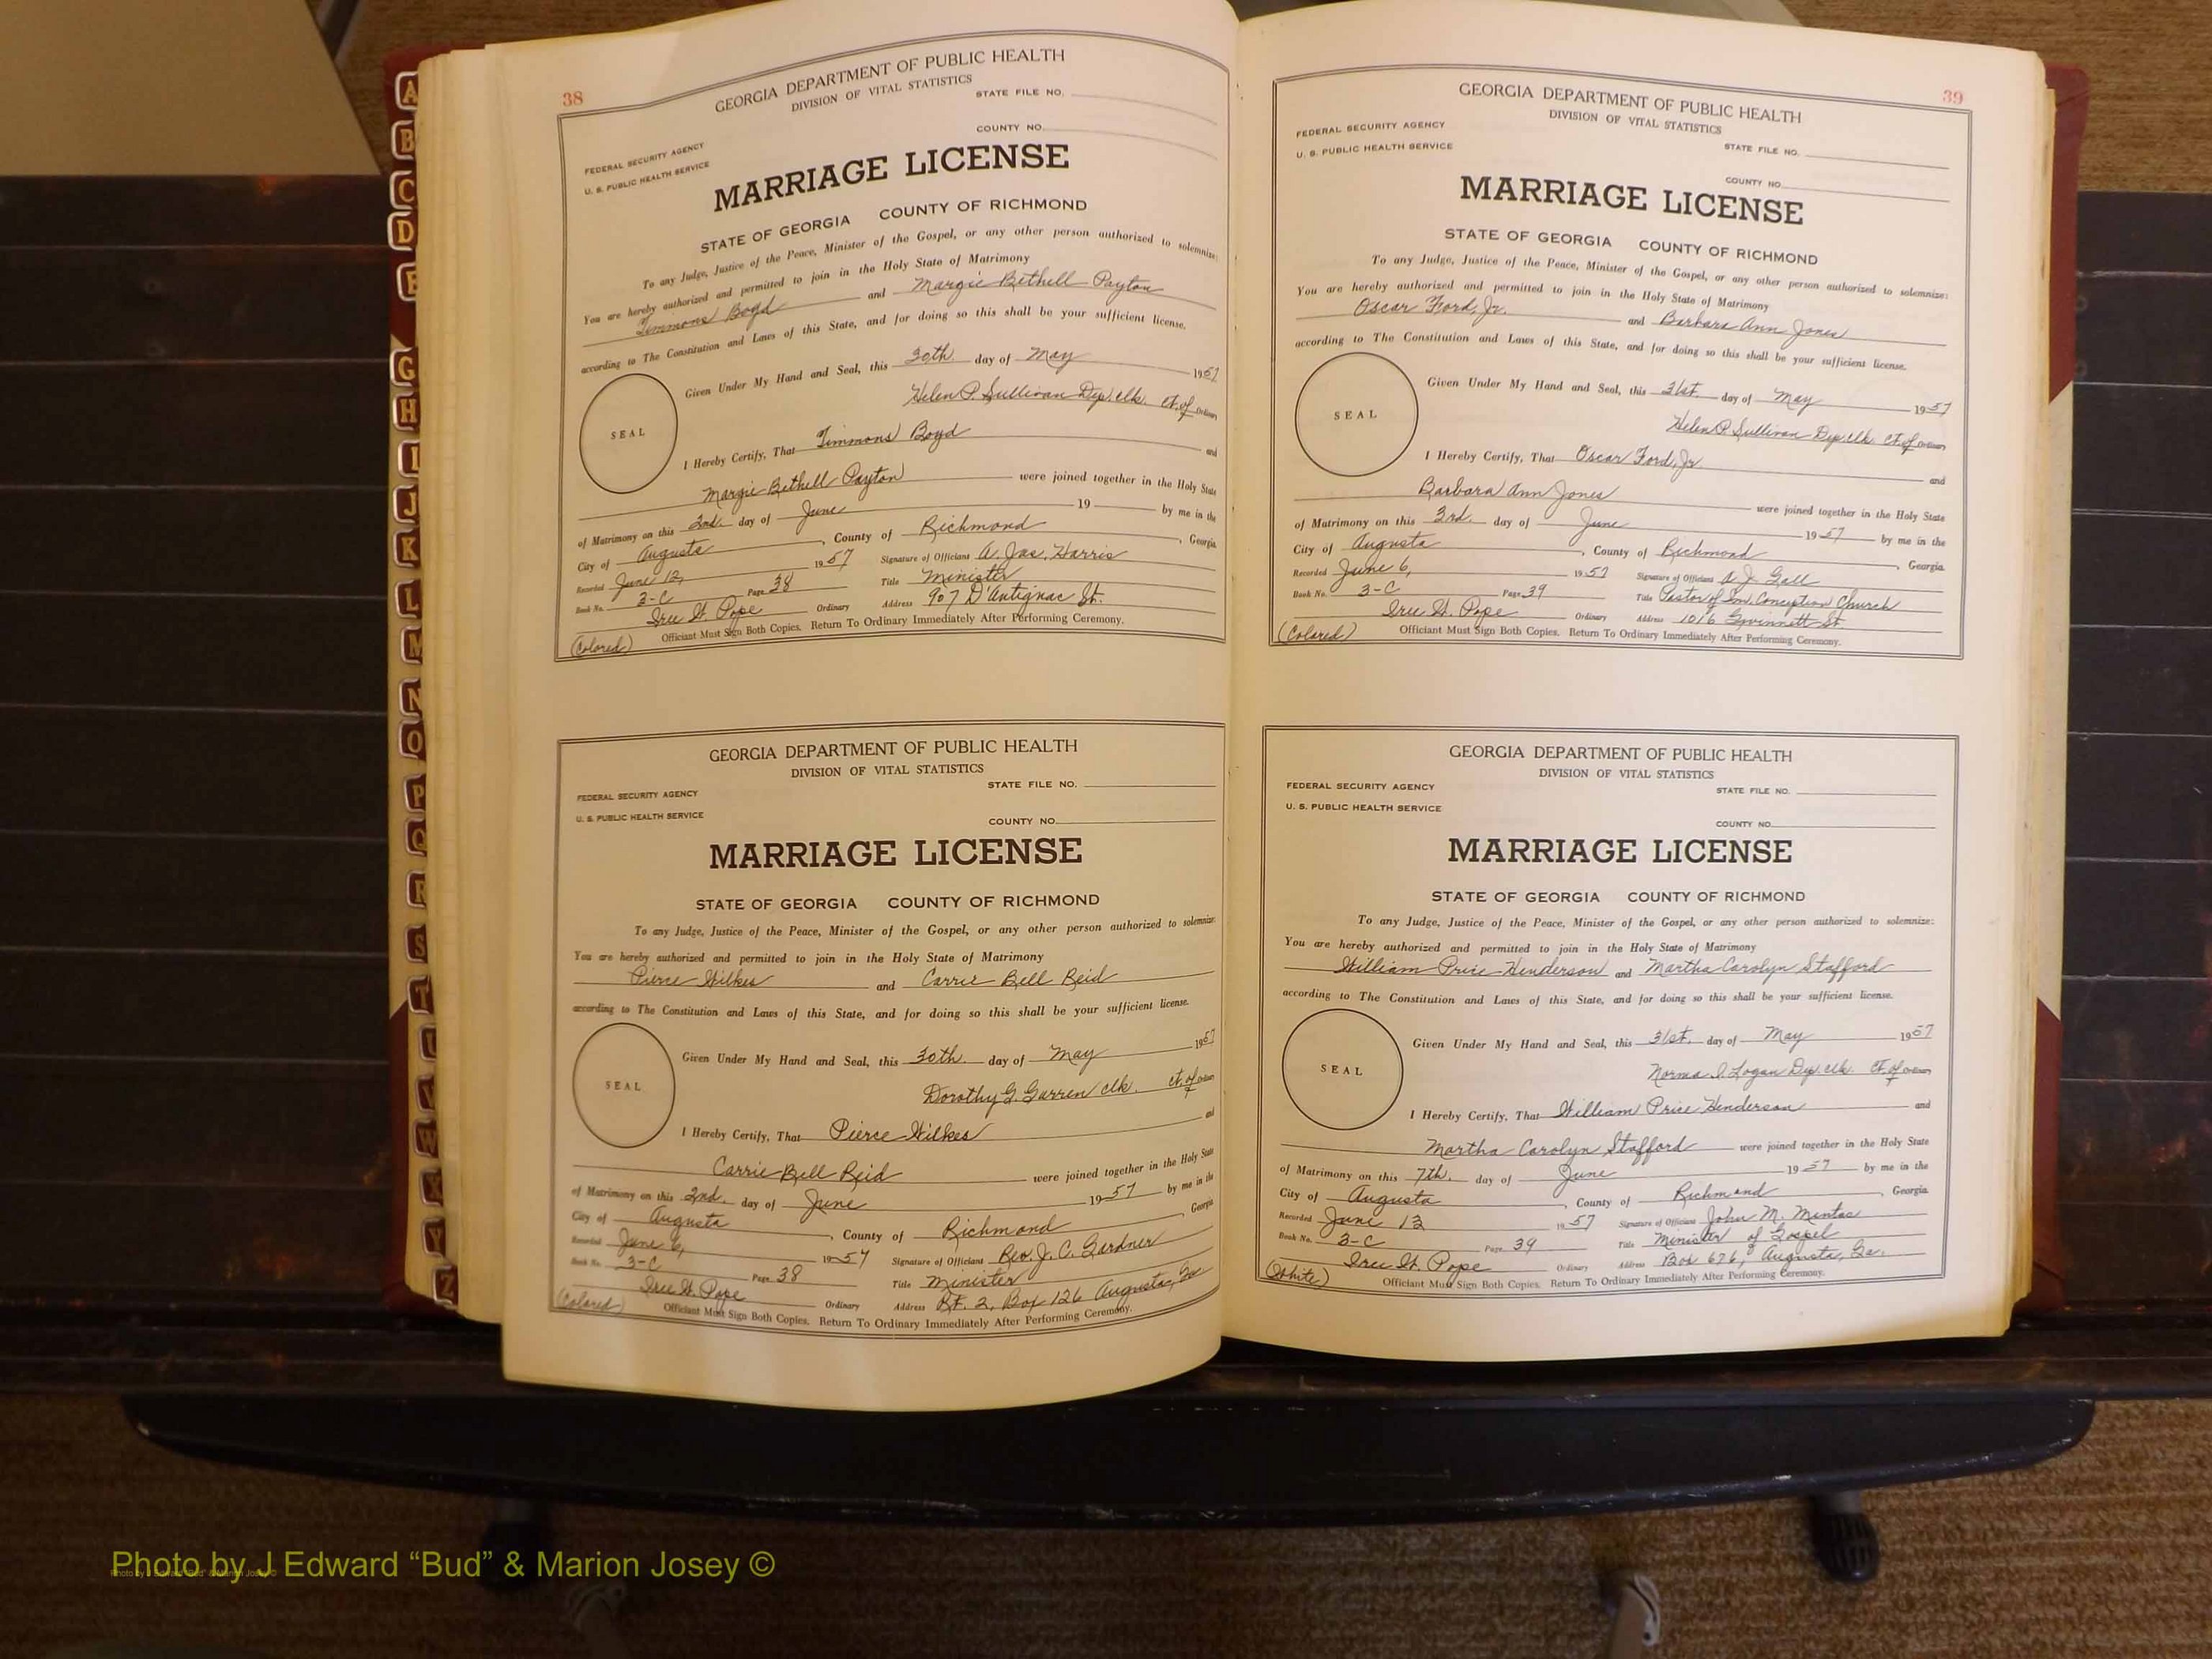 A
B
C
D
F
G
H
I
J
K
L
M
N
O
P
Q
R
S
T
V
W
X
Y
Z
38
GEORGIA DEPARTMENT OF PUBLIC HEALTH
DIVISION OF VITAL STATISTICS
STATE FILE NO.
COUNTY NO.
FEDERAL SECURITY AGENCY
U. S. PUBLIC HEALTH SERVICE
MARRIAGE LICENSE
STATE OF GEORGIA COUNTY OF RICHMOND
To any Judge, Justice of the Peace, Minister of the Gospel, or any other person authorized to solemnize:
You are hereby authorized and permitted to join in the Holy State of Matrimony
Timmons Boyd and Margie Bethell Payton
according to The Constitution and Laws of this State, and for doing so this shall be your sufficient license.
Given Under My Hand and Seal, this 30th. day of May 1957
Helen P. Sullivan Dep. clk. Ct. of Ordinary
SEAL
I Hereby Certify, That Timmons Boyd and
Margie Bethell Payton were joined together in the Holy State
of Matrimony on this 2nd. day of June 19 by me in the
City of Augusta, County of Richmond, Georgia.
Recorded June 12, 1957 Signature of Officiant A. Jas. Harris
Book No. 3-C Page 38 Title Minister
Iree W. Pope Ordinary Address 907 D'Antignac St.
(Colored) Officiant Must Sign Both Copies. Return To Ordinary Immediately After Performing Ceremony.
GEORGIA DEPARTMENT OF PUBLIC HEALTH
DIVISION OF VITAL STATISTICS
STATE FILE NO.
FEDERAL SECURITY AGENCY
U. S. PUBLIC HEALTH SERVICE
COUNTY NO.
MARRIAGE LICENSE
STATE OF GEORGIA COUNTY OF RICHMOND
To any Judge, Justice of the Peace, Minister of the Gospel, or any other person authorized to solemnize:
You are hereby authorized and permitted to join in the Holy State of Matrimony
Pierce Wilkes and Carrie Bell Reid
according to The Constitution and Laws of this State, and for doing so this shall be your sufficient license.
Given Under My Hand and Seal, this 30th. day of May 1957
Dorothy G. Garren clk. Ct. of Ordinary
SEAL
I Hereby Certify, That Pierce Wilkes and
Carrie Bell Reid were joined together in the Holy State
of Matrimony on this 2nd. day of June 1957 by me in the
City of Augusta, County of Richmond Georgia
Recorded June 6, 1957 Signature of Officiant Rev. J. C. Gardner
Book No. 3-C Page 38 Title Minister
Iree W. Pope Ordinary Address Rt. 2, Box 126 Augusta, Ga
(Colored) Officiant Must Sign Both Copies. Return To Ordinary Immediately After Performing Ceremony.
39
GEORGIA DEPARTMENT OF PUBLIC HEALTH
DIVISION OF VITAL STATISTICS
FEDERAL SECURITY AGENCY
U. S. PUBLIC HEALTH SERVICE
STATE FILE NO.
COUNTY NO.
MARRIAGE LICENSE
STATE OF GEORGIA COUNTY OF RICHMOND
To any Judge, Justice of the Peace, Minister of the Gospel, or any other person authorized to solemnize:
You are hereby authorized and permitted to join in the Holy State of Matrimony
Oscar Ford, Jr. and Barbara Ann Jones
according to The Constitution and Laws of this State, and for doing so this shall be your sufficient license.
Given Under My Hand and Seal, this 31st. day of May 1957
Helen P. Sullivan Dep. clk. Ct. of Ordinary
SEAL
I Hereby Certify, That Oscar Ford, Jr and
Barbara Ann Jones were joined together in the Holy State
of Matrimony on this 3rd. day of June 1957 by me in the
City of Augusta, County of Richmond, Georgia.
Recorded June 6, 1957 Signature of Officiant A. J. Gall
Book No. 3-C Page 39 Title Pastor of Im. Conception Church
Iree W. Pope Ordinary Address 1016 Gwinnett St.
(Colored) Officiant Must Sign Both Copies. Return To Ordinary Immediately After Performing Ceremony.
GEORGIA DEPARTMENT OF PUBLIC HEALTH
DIVISION OF VITAL STATISTICS
FEDERAL SECURITY AGENCY
STATE FILE NO.
U. S. PUBLIC HEALTH SERVICE
COUNTY NO.
MARRIAGE LICENSE
STATE OF GEORGIA COUNTY OF RICHMOND
To any Judge, Justice of the Peace, Minister of the Gospel, or any other person authorized to solemnize:
You are hereby authorized and permitted to join in the Holy State of Matrimony
William Price Henderson and Martha Carolyn Stafford
according to The Constitution and Laws of this State, and for doing so this shall be your sufficient license.
Given Under My Hand and Seal, this 31st. day of May 1957
Norma I. Logan Dep. clk. Ct. of Ordinary
SEAL
I Hereby Certify, That William Price Henderson and
Martha Carolyn Stafford were joined together in the Holy State
of Matrimony on this 7th. day of June 1957 by me in the
City of Augusta, County of Richmond, Georgia.
Recorded June 13 1957 Signature of Officiant John M.
Book No. 3-C Page 39 Title Minister of Gospel
Iree W. Pope Ordinary Address Box 676, Augusta, Ga.
(White) Officiant Must Sign Both Copies. Return To Ordinary Immediately After Performing Ceremony.
Photo by J Edward “Bud” & Marion Josey ©
Photo by J Edward “Bud” & Marion Josey ©